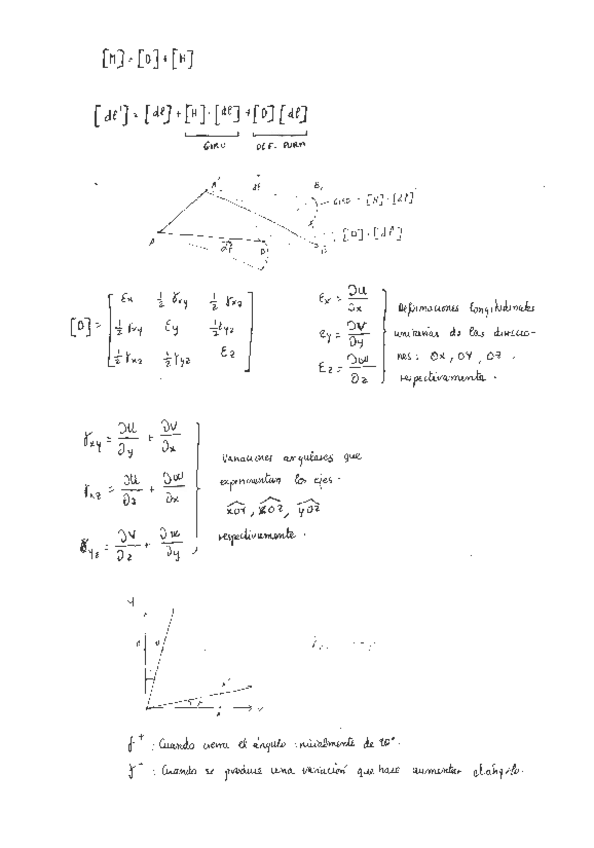 [M] = [D] + [H]
[dl'] = [dl] + [H]·[dl] + [D][dl]
GIRO DEF. PURA
A' dl B,
GIRO = [H]·[dl]
A dl B' [D]·[dl]
[D] = [εx ½ γxy ½ γxz
½ γxy εy ½ γyz
½ γxz ½ γyz εz]
εx = ∂u/∂x
εy = ∂v/∂y
εz = ∂w/∂z
Deformaciones longitudinales
unitarias de las direccio-
nes: OX, OY, OZ,
respectivamente.
γxy = ∂u/∂y + ∂v/∂x
γxz = ∂u/∂z + ∂w/∂x
γyz = ∂v/∂z + ∂w/∂y
Variaciones angulares que
experimentan los ejes.
XOY, XOZ, YOZ
respectivamente.
Y
γ+ : Cuando cierra el ángulo inicialmente de 90°.
γ- : Cuando se produce una variación que hace aumentar el ángulo.